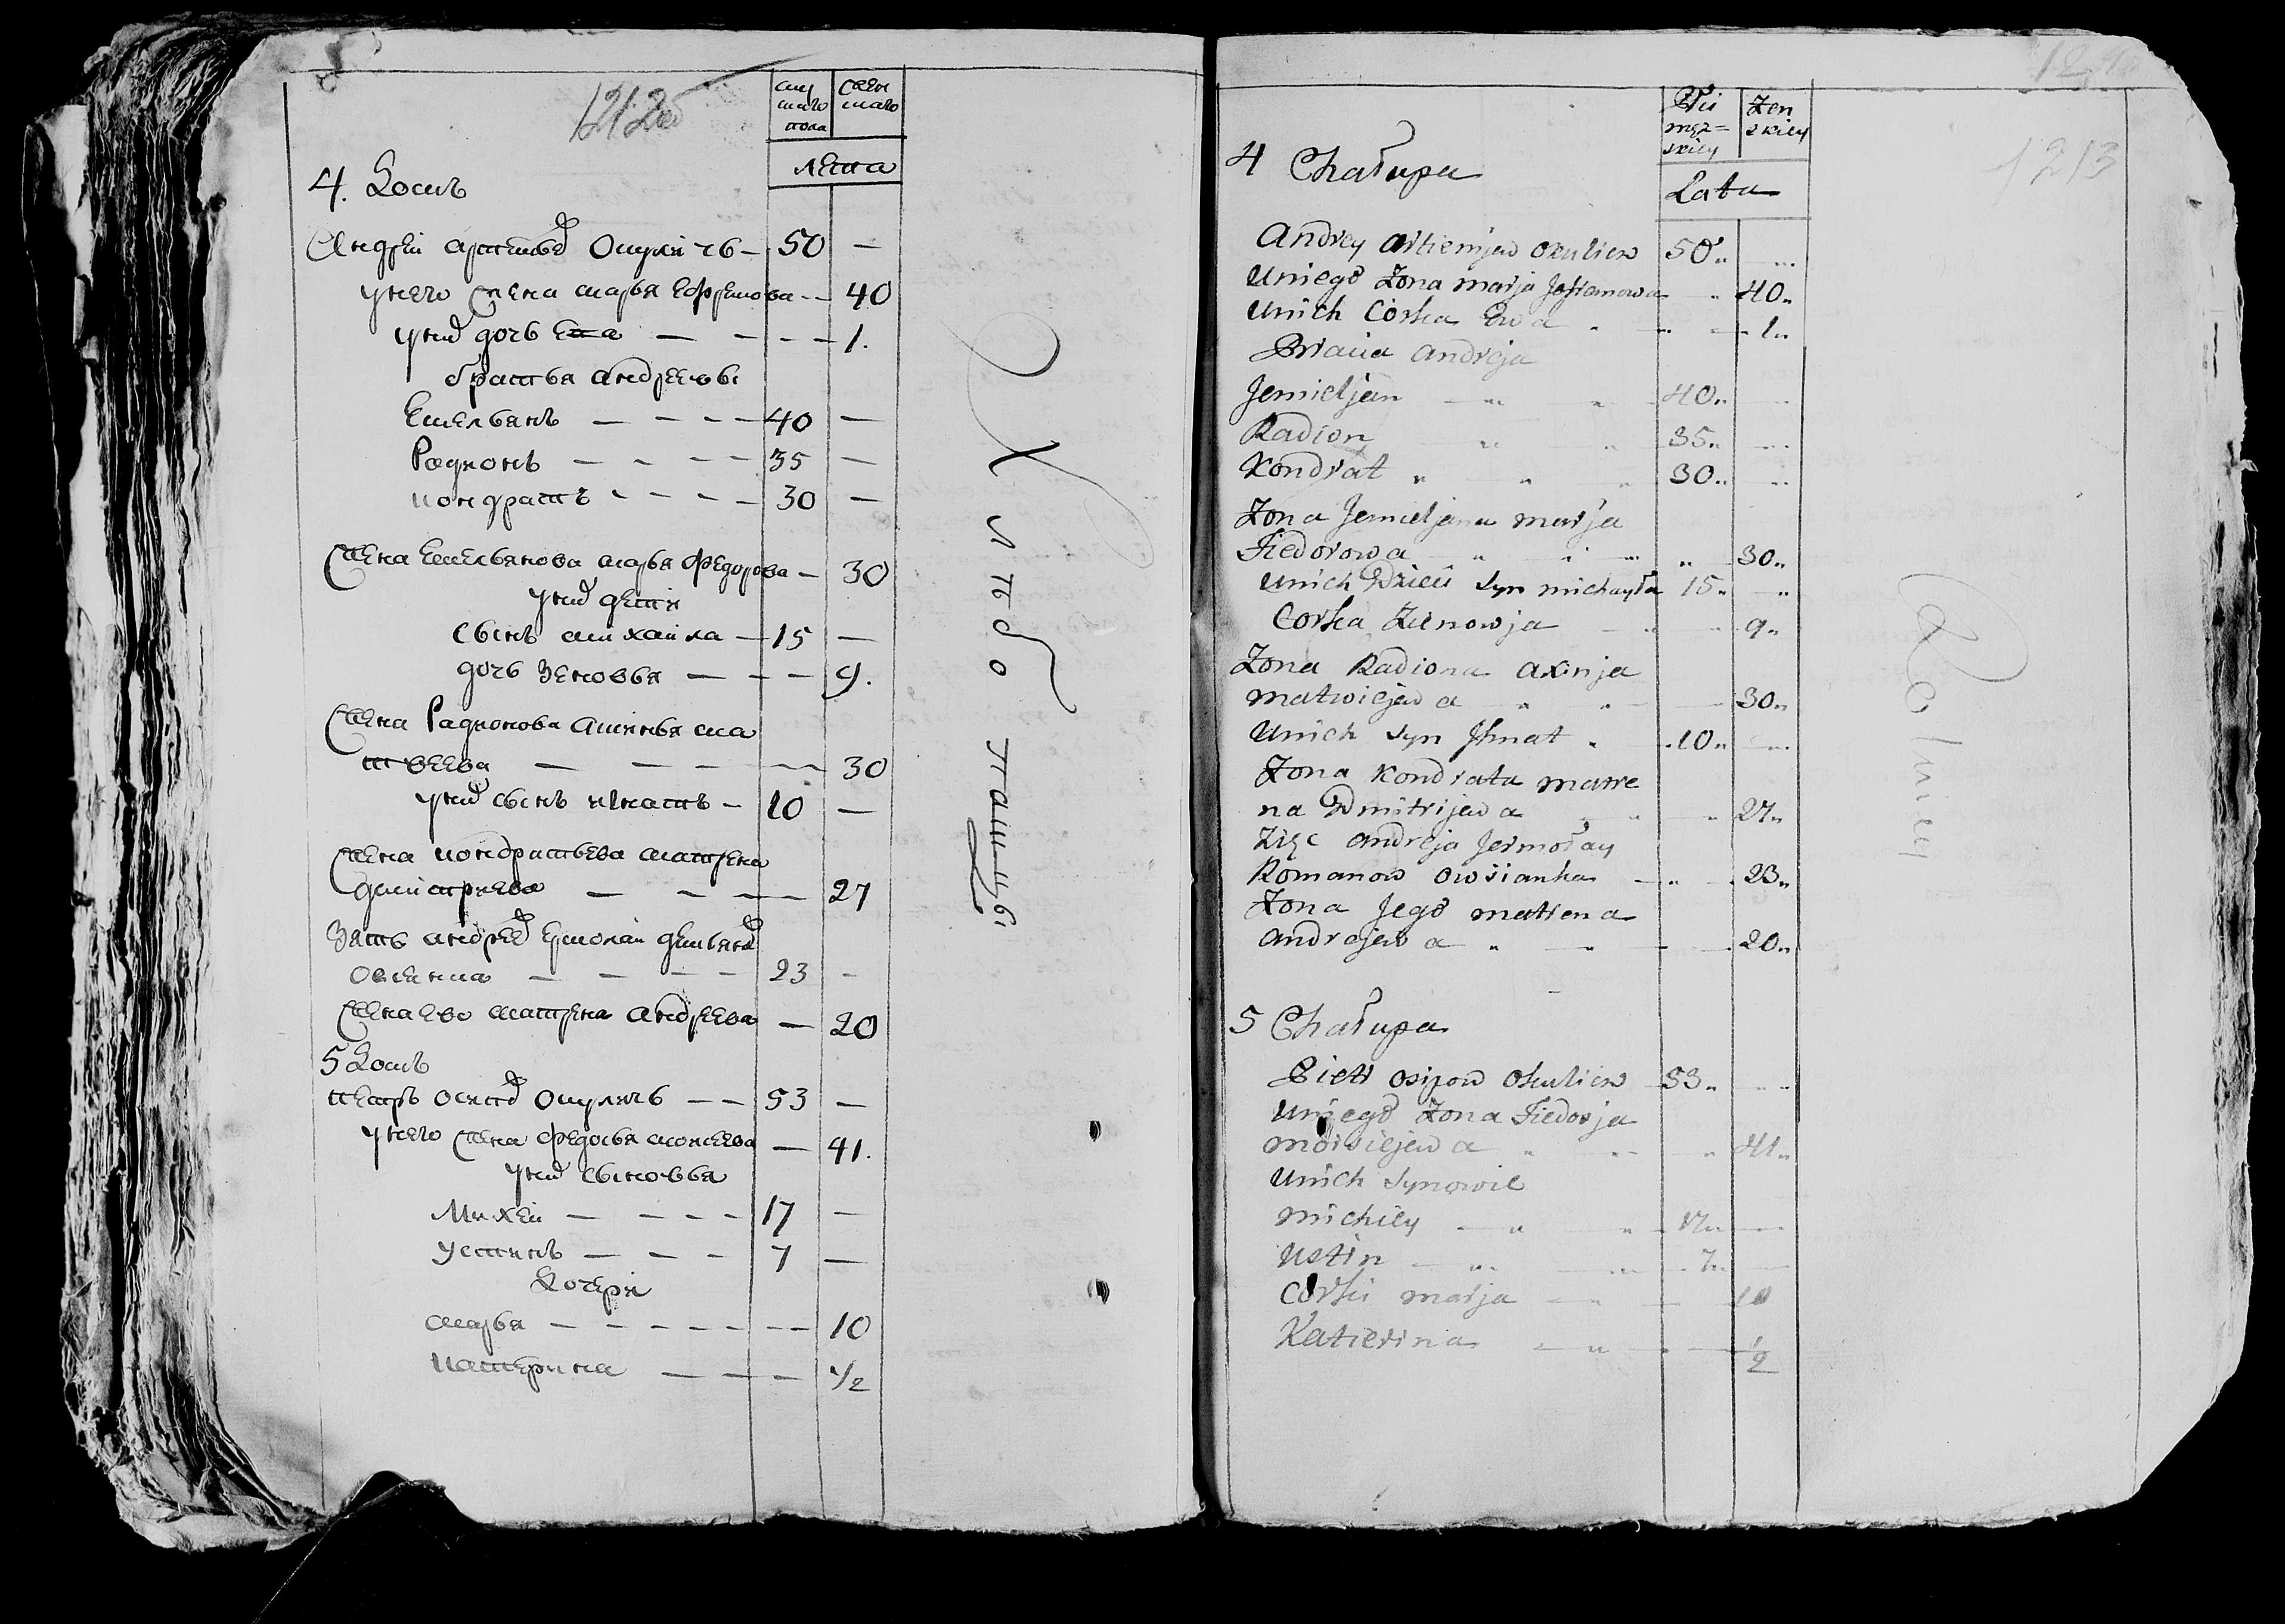 1212об
муж
скаго
пола
женскаго
лета
4. Домъ
Андрей артемьев Окуличъ — 50 —
у него жена марья Ефремова -- 40
у них дочь Ева — — - - 1.
братья андреевы
Емельянъ — — - - 40 —
Родионъ — - — — 35 —
кондратъ - - — — 30 —
жена Емельянова марья Федорова — 30
у них дети
сынъ михайла — 15 —
дочь Зеновья — - — 9.
жена Радионова аксинья ма
твеева — — - — 30
у них сынъ игнатъ - 10 —
жена кондратьева матрена
дмитриева — - — 27
Зять андреев Ермолай демьянов
Овсенка — — — — 23 -
жена ево матрена андреева — 20
5 Домъ
петръ осипов Окуличъ — — 53 —
у него жена Федосья моисеева — 41.
у них сыновья
Михей — — - - 17 —
устинъ — — - — 7 —
Дочери
марья — — — — — — 10
катерина — — — 1/2
Хлтборпашцы
1213
Płci
męz=
skiey
Zen
skiey
Lata
4 Chałupa
Andrey Artiemjew Okuliew 50 „
U niego Zona marja Joframowa „ 40 „
Unich Córka Ewa „ 1 „
Bracia Andreja
Jemieljan „ 40 „
Radion „ 35 „
Kondrat „ 30 „
Zona Jemieljana marja
Fiedorowa „ 30 „
Unich Dzieci Syn michayła 15 „
Corka Zienowja 9 „
Zona Radiona axinja
matwiejewa 30 „
Unich Syn Ihnat „ 10 „
Zona Kondrata matre
na Dmitrijewa 27 „
Zięc andreja Jermołay
Romanow Owsianka 23 „
Zona Jego matrena
andrejewa „ 20 „
5 Chałupa
Pietr Osipow Okuliew 53 „
U niego Zona Fiedosja
moisiejewa „ 41 „
Unich Synowie
Michiey „ 17 „
Ustin „ 7 „
Corki marja „ 10
Katierina „ 1/2
Rolniey